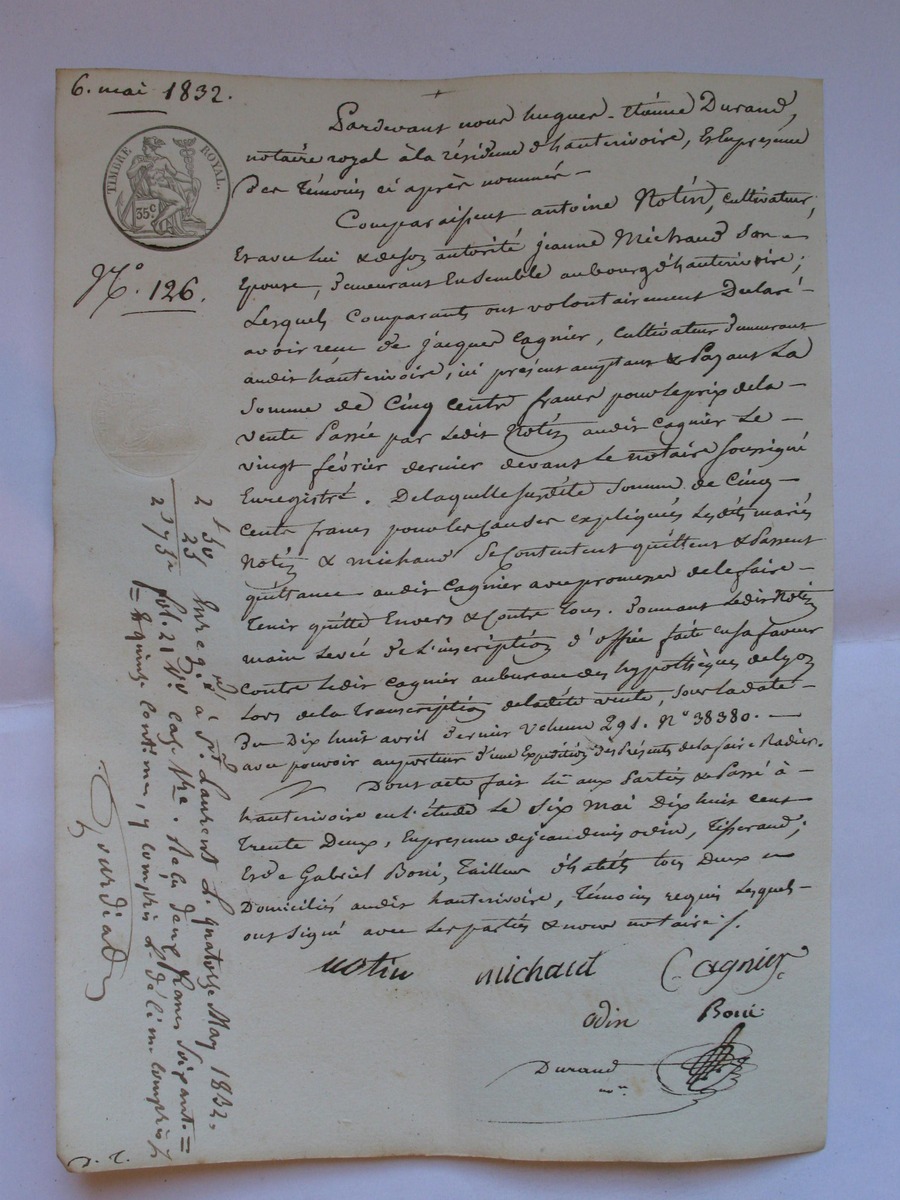 6. mai 1832.
TIMBRE ROYAL.
35c
N.o 126.
Pardevant nous hugues-Etienne Durand,
notaire royal à la résidence d'hauterivoire, Et En présence
des Témoins ci après nommés —
Comparaissent antoine Notin, cultivateur,
Et avec lui & de son autorité jeanne Michaud son —
Epouse, demeurant Ensemble au bourg d'hauterivoire;
Lesquels Comparants ont volontairement Déclaré —
avoir reçu de jacques Cagnier, Cultivateur demeurant
audit hauterivoire, ici présent acceptant & Payant La
Somme de Cinq Cents francs pour le prix de la —
vente Passée par Ledit Notin audit Cagnier Le —
vingt février dernier devant Le notaire Soussigné
Enregistré. De laquelle susdite Somme de Cinq —
Cents francs pour les Causes expliquées Lesdits mariés
Notin & michaud Se Contentent quittent & Passent
quittance audit Cagnier avec promesse de le faire —
Tenir quitte Envers & Contre Tous. Donnant Ledit Notin
main Levée de L'inscription d'office faite en sa faveur
Contre Ledit Cagnier au bureau des hypothèques de Lyon
Lors de la Transcription de ladite vente, sous la date —
Du Dix huit avril dernier volume 291. N° 38380. —
avec pouvoir au porteur d'une Expédition des Présentes de la faire Radier.
Dont acte fait Lu aux Parties & Passé à —
hauterivoire en L'étude Le Six Mai Dix huit cent
Trente Deux, En présence de jean denis odin, Tisserand;
Et de Gabriel Boni, Tailleur d'habits tous Deux —
Domiciliés audit hauterivoire, Témoins requis Lesquels —
ont Signé avec Les parties & nous notaire ./.
notin michaud Cagnier
odin Boni
Durand
nre
2 50
25
2 75
Enregd à St Laurent L. quatorze May 1832.
fol. 21 Vo cas. Reçu deux francs Soixante =
= & quinze centimes, y compris L. décime
Gourdiat